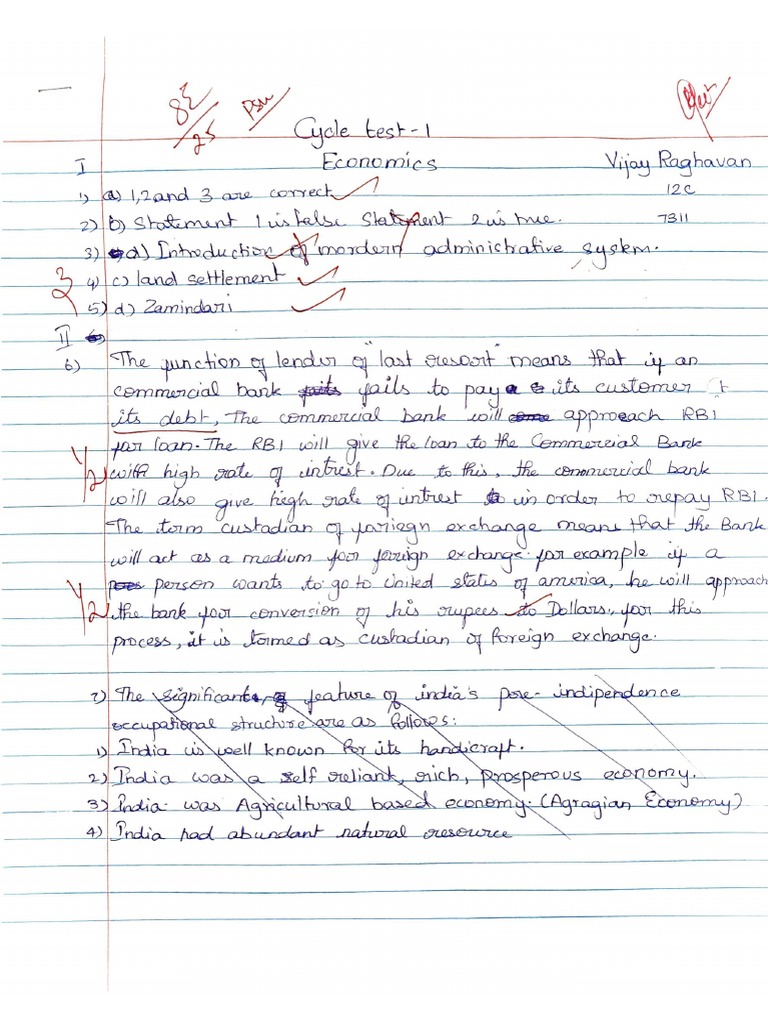 8½/25
Cycle test-1
I Economics Vijay Raghavan
1) a) 1,2 and 3 are correct 12C
2) b) Statement 1 is false Statement 2 is true. 7311
3) d) Introduction of mordern administrative system.
3 4) c) land settlement
5) d) Zamindari
II
6) The function of lender of "last resort" means that if an
commercial bank fails to pay its customer
its debt, The commercial bank will approach RBI
for loan. The RBI will give the loan to the Commercial Bank
1/2 with high rate of intrest. Due to this, the commercial bank
will also give high rate of intrest in order to repay RBI.
The term custadian of foriegn exchange means that the Bank
will act as a medium for foreign exchange for example if a
person wants to go to United states of america, he will approach
1/2 the bank for conversion of his rupees to Dollars, for this
process, it is termed as custadian of foreign exchange.
7) The significant feature of india's pre-indipendence
occupational structure are as follows:
1) India is well known for its handicraft.
2) India was a self reliant, rich, prosperous economy.
3) India was Agricultural based economy. (Agragian Economy)
4) India had abundant natural resource